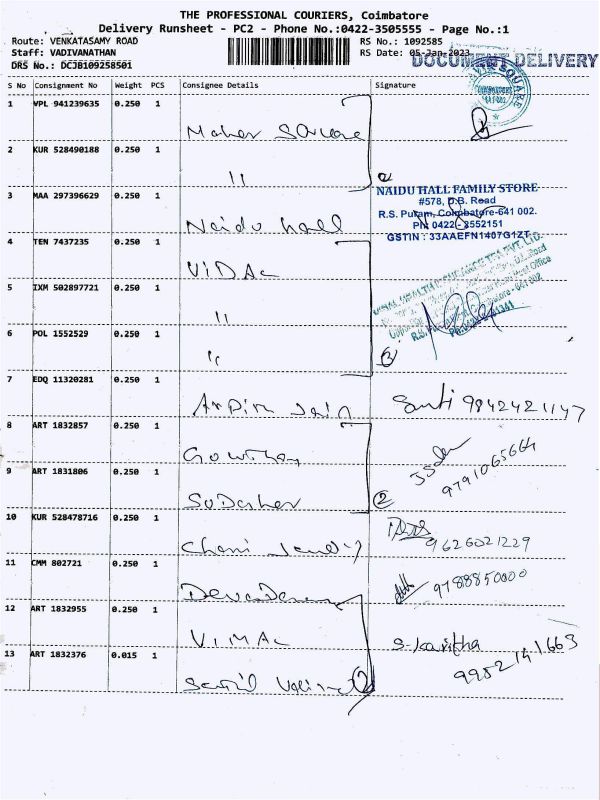 THE PROFESSIONAL COURIERS, Coimbatore
Delivery Runsheet - PC2 - Phone No.:0422-3505555 - Page No.:1
Route: VENKATASAMY ROAD RS No.: 1092585
Staff: VADIVANATHAN RS Date: 05-Jan-2023
DOCUMENT DELIVERY
DRS No.: DCJB109258501
S No Consignment No Weight PCS Consignee Details Signature
1 VPL 941239635 0.250 1
Maher Square
2 KUR 528490188 0.250 1
"
2
NAIDU HALL FAMILY STORE
3 MAA 297396629 0.250 1
#578, D.B. Road
R.S. Puram, Coimbatore-641 002.
Naidu hall
PH: 0422-3552151
GSTIN : 33AAEFN1407G1ZT
4 TEN 7437235 0.250 1
ViDAL
5 IXM 502897721 0.250 1
"
6 POL 1552529 0.250 1
"
3
7 EDQ 11320281 0.250 1
Jain 9842421147
8 ART 1832857 0.250 1
Gowtham
9791065664
9 ART 1831806 0.250 1
2
10 KUR 528478716 0.250 1
9626021229
11 CMM 802721 0.250 1
9788850000
12 ART 1832955 0.250 1
ViMAL
S. Kavitha
9952141663
13 ART 1832376 0.015 1
2